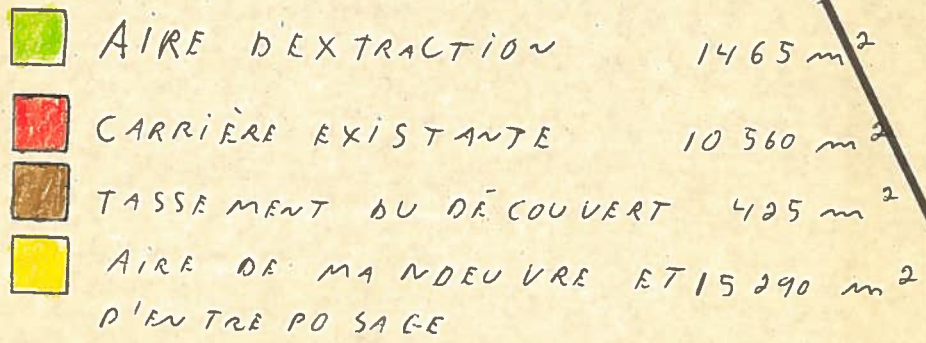 AIRE D'EXTRACTION 1465 m²
CARRIÈRE EXISTANTE 10 560 m²
TASSEMENT DU DÉCOUVERT 425 m²
AIRE DE MANOEUVRE ET 15 290 m²
D'ENTREPOSAGE